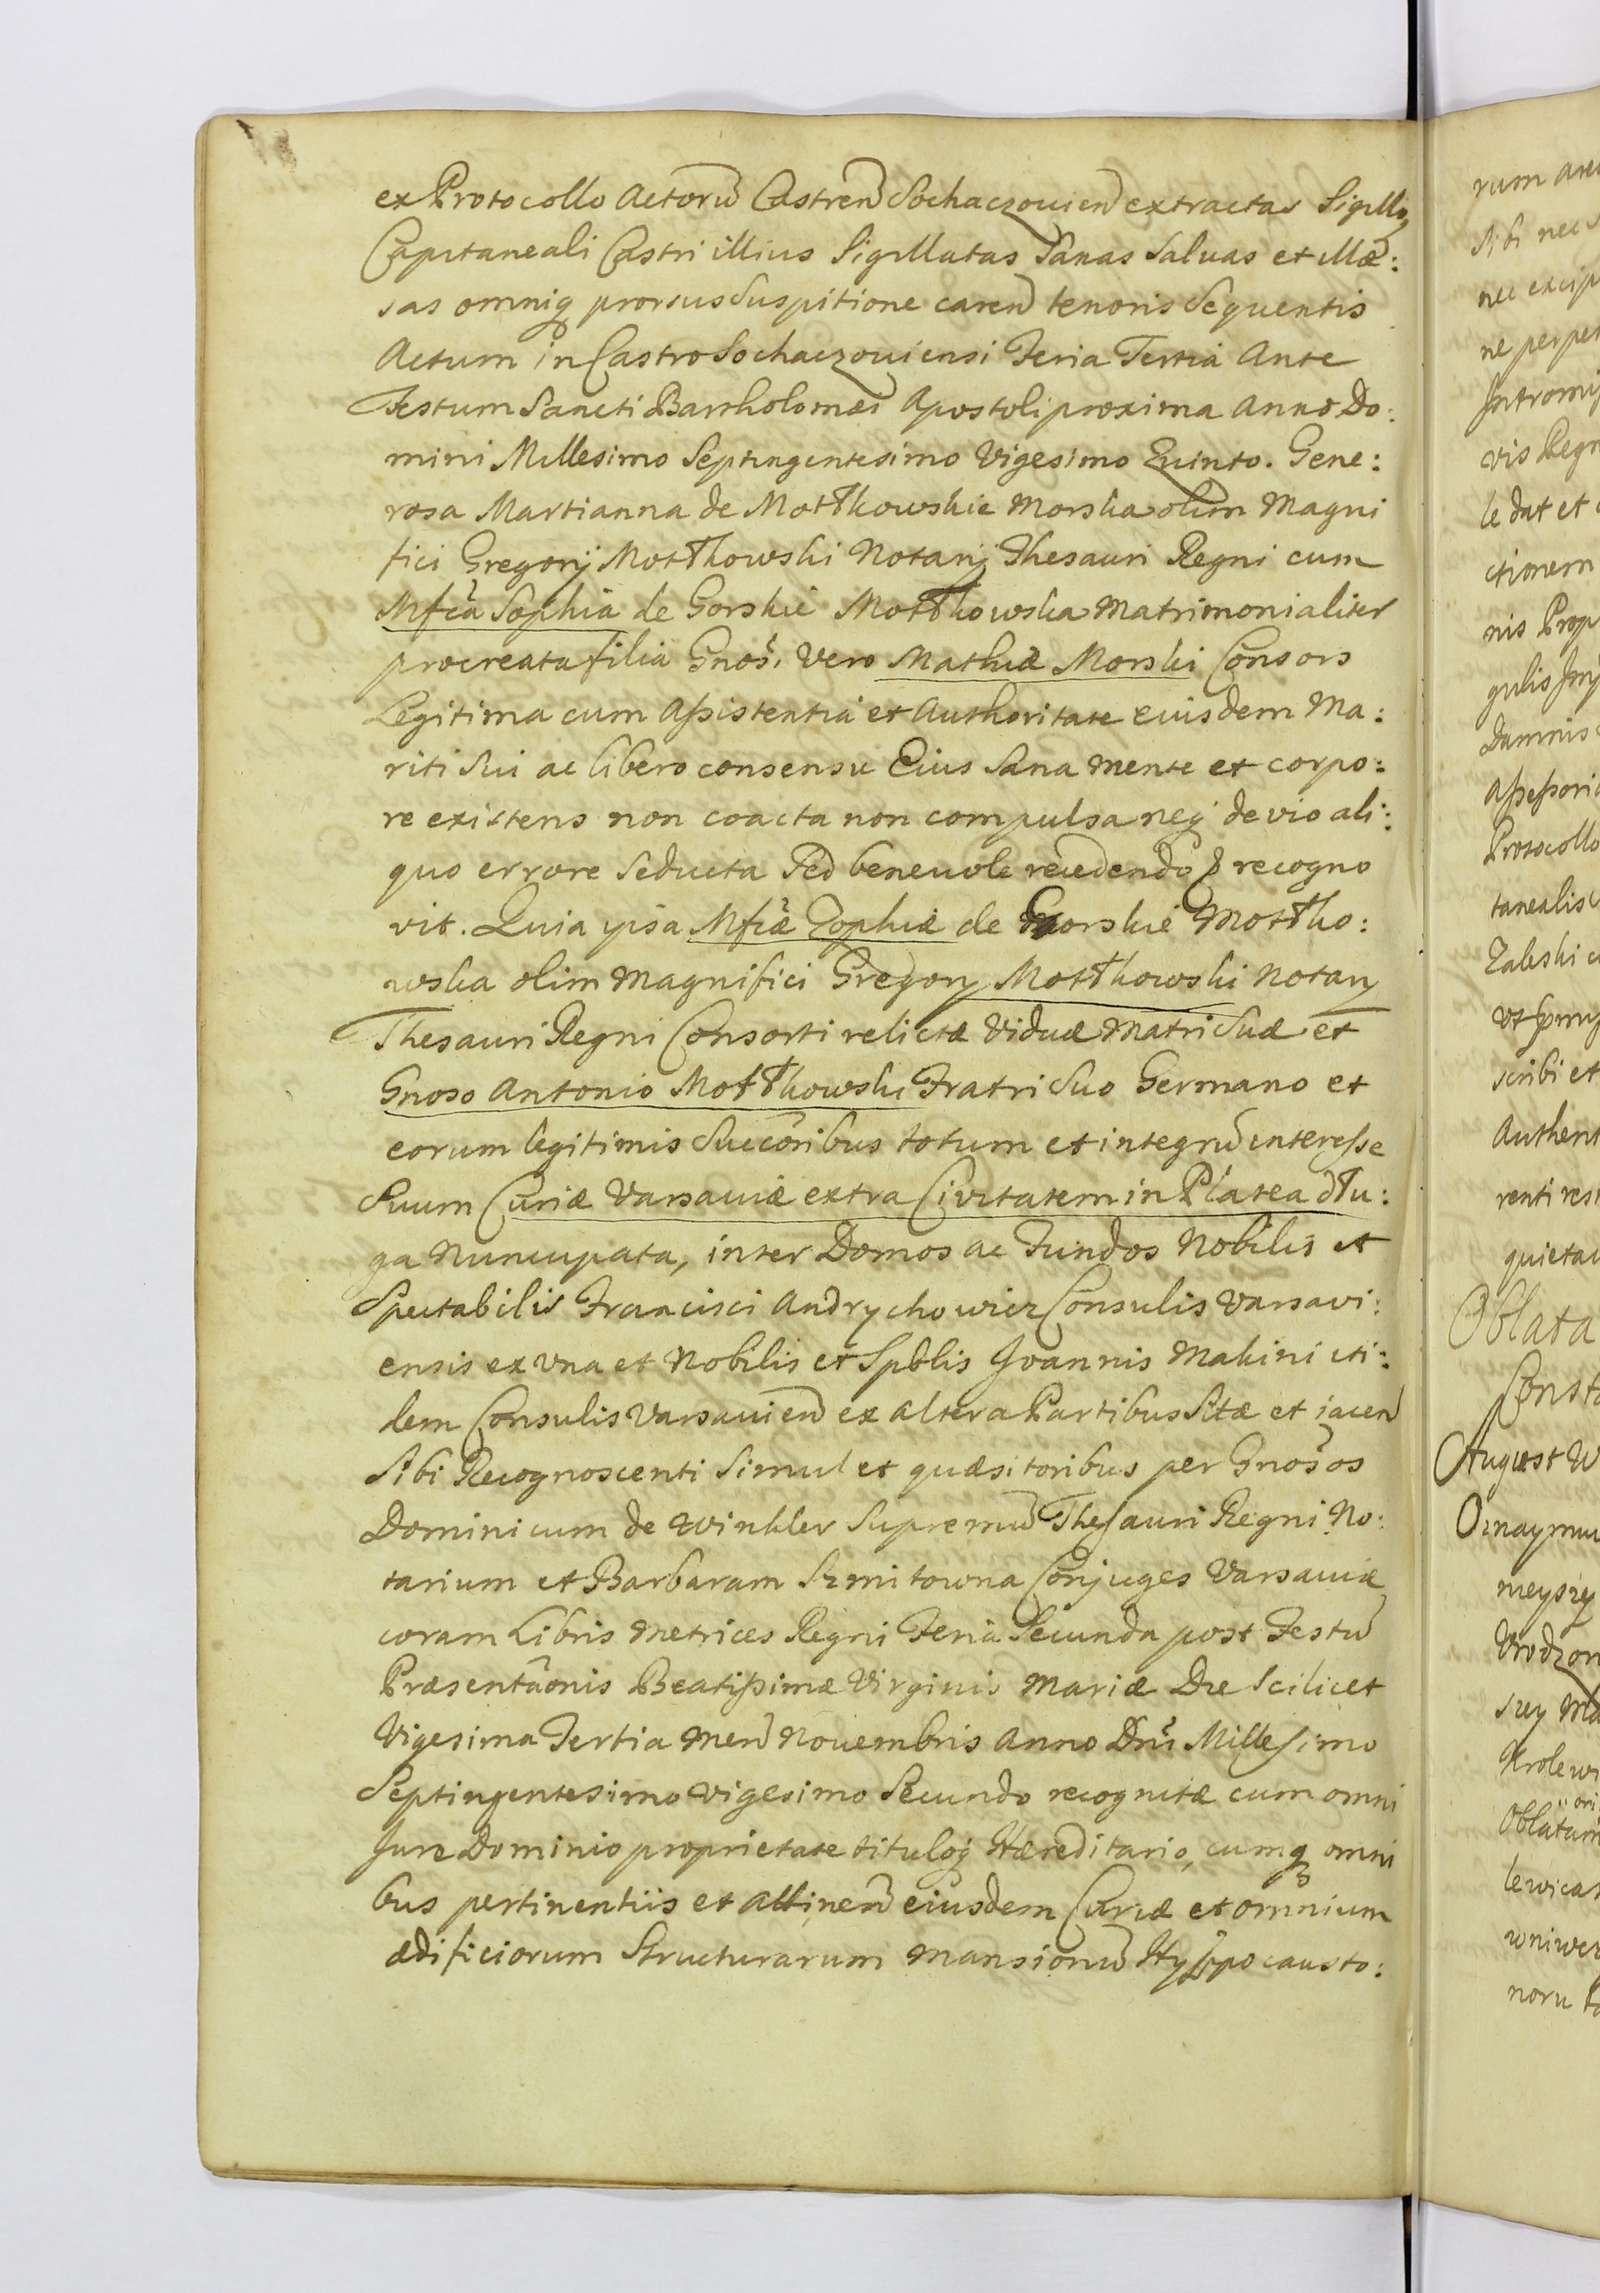 ex Protocollo Actorũ Castren̄ Sochaczouien̄ extractas Sigillo
Capitaneali Castri illius Sigillatas Sanas Saluas et illæ:
sas omniq prorsus Suspitione caren̄ tenoris Sequentis
Actum in Castro Sochaczouiensi Feria Tertia Ante
Festum Sancti Bartholomæi Apostoli proxima Anno Do:
mini Millesimo Septingentesimo Vigesimo Quinto. Gene:
rosa Martianna de Mottkowskie Morska olim Magni
fici Gregorij Mottkowski Notarij Thesauri Regni cum
Mfcã Sophia de Gorskie Mottkowska Matrimonialiter
procreata filia Gnosi. Vero Mathiæ Morski Consors
Legitima cum Assistentia et Authoritate eiusdem Ma:
riti Sui ac libero consensu Eius Sana Mente et corpo:
re existens non coacta non compulsa neq de vio ali:
quo errore Seducta Sed beneuole recedendo & recogno
vit. Quia ipsa Mfcæ Zophiæ de Gorskie Mottko:
wska olim Magnifici Gregorij Mottkowski Notarij
Thesauri Regni Consorti relictæ Viduæ Matri Suæ et
Gnoso Antonio Mottkowski Fratri Suo Germano et
eorum legitimis Succoribus totum et integrũ interesse
Suum Curiæ Varsauiæ extra Civitatem in Platea dłu:
ga nuncupata, inter Domos ac Fundos Nobilis et
Spectabilis Francisci Andrychowicz Consulis Varsavi:
ensis ex vna et Nobilis et Spblis Joannis Makini iti:
dem Consulis Varsauien̄ ex altera Partibus Sitæ et iacen̄
Sibi Recognoscenti Simul et quæsitoribus per Gnosos
Dominicum de Winkler Supremũ Thesauri Regni No:
tarium et Barbaram Szmitowna Conjuges Varsauiæ
coram Libris Metrices Regni Feria Secunda post Festũ
Præsentãonis Beatissimæ Virginis Mariæ Die Scilicet
Vigesima Tertia Men̄ Nouembris Anno Dni Millesimo
Septingentesimo Vigesimo Secundo recognitæ cum omni
Jure Dominio proprietate tituloq Hæreditario, cumq omni
bus pertinentiis et attinen̄ eiusdem Curiæ et omnium
ædificiorum Structurarum Mansionũ Hyppocausto:
rum
Sibi nec
nec excip
ne perpet
Intromi
vis Regn
le dat et
ctionem
nis Prop
gulis
Damnis
Assessoria
Protocollo
tanealis
Zaleski
scribi et
Authent
renti res
quieta
Oblata
Const
August W
Oznaymu
Vrodzon
szey Ma
Krolew
Oblatam
lewicas
uniwer
noru